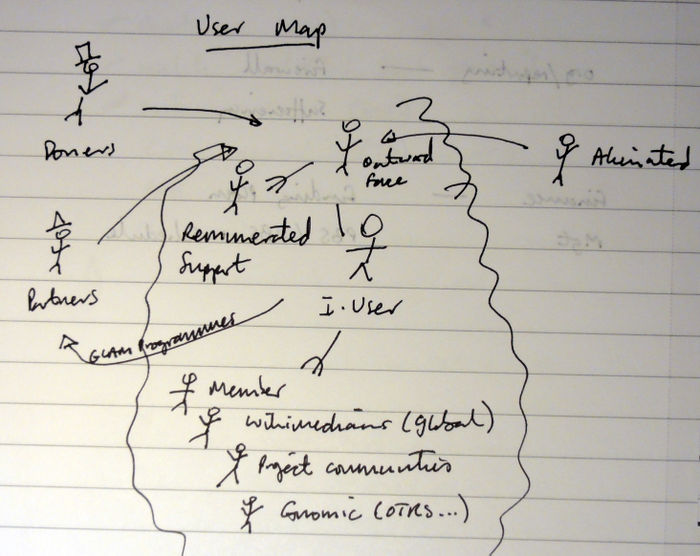 User Map
Donors
Outward
Face
Alienated
Remunerated
Support
Partners
I. User
GLAM Programmes
Member
Wikimedians (global)
Project communities
Gnomic (OTRS...)